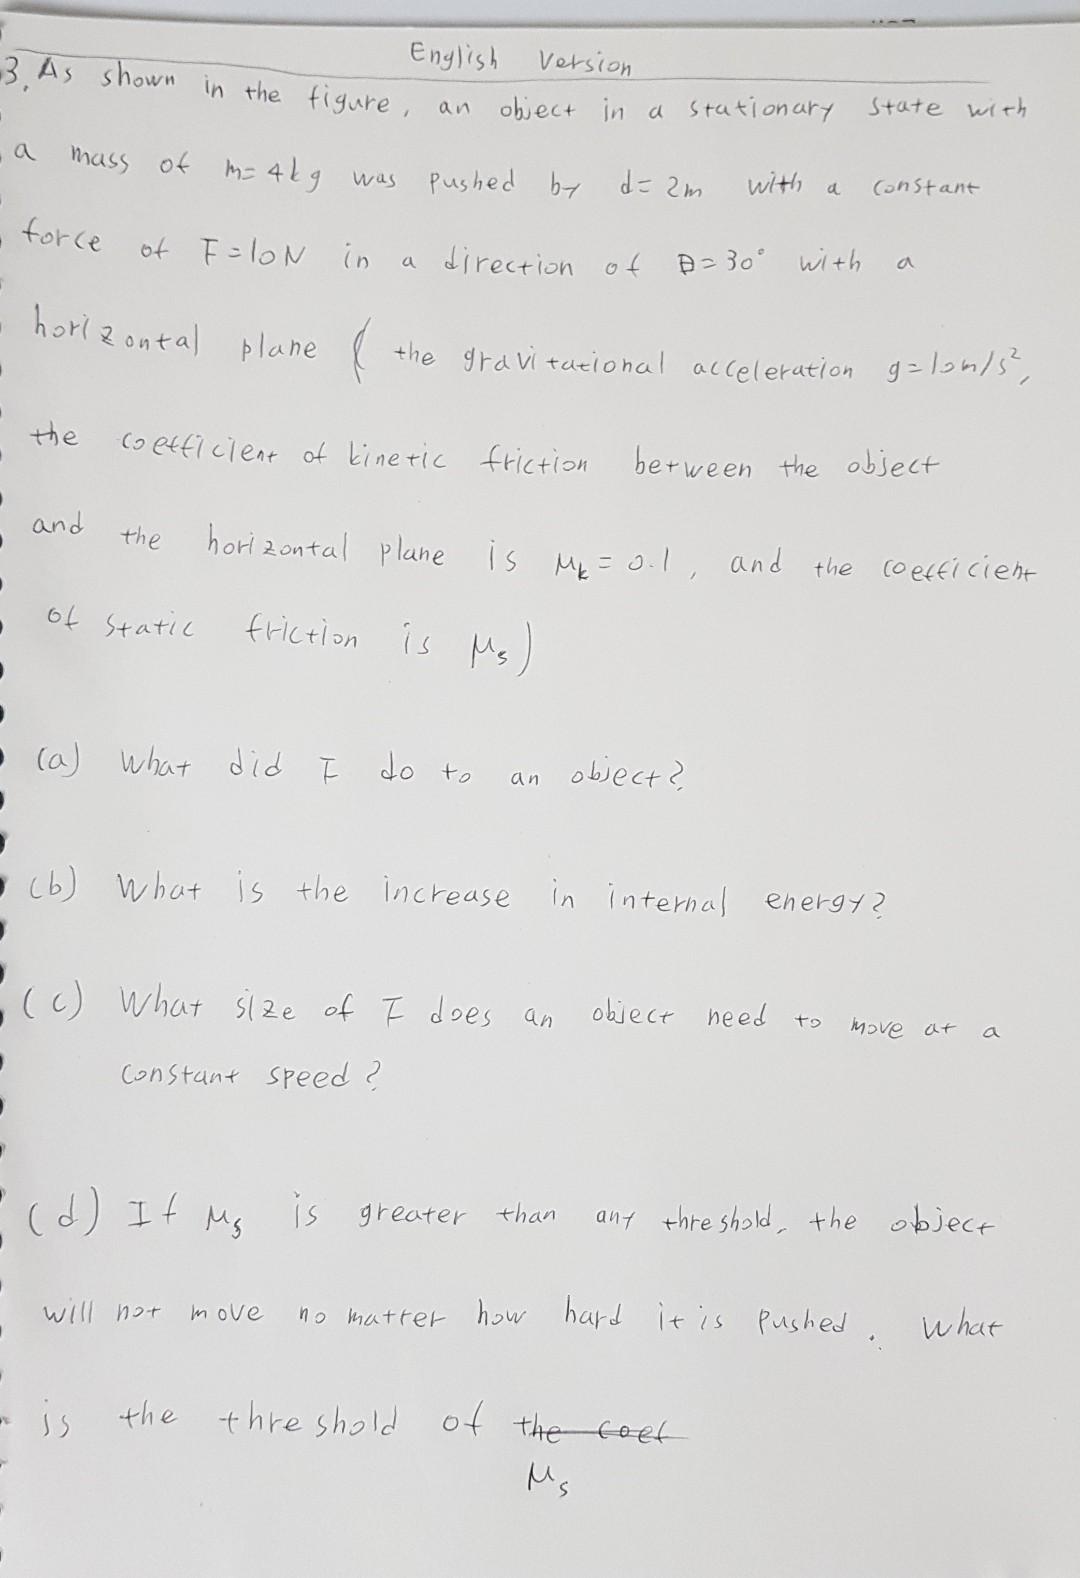 English Version
3. As shown in the figure, an object in a stationary state with
a mass of m=4kg was pushed by d=2m with a constant
force of F=10N in a direction of θ=30° with a
horizontal plane ( the gravitational acceleration g=10m/s²,
the coefficient of kinetic friction between the object
and the horizontal plane is μk=0.1, and the coefficient
of static friction is μs)
(a) What did F do to an object?
(b) What is the increase in internal energy?
(c) What size of F does an object need to move at a
constant speed?
(d) If μs is greater than any threshold, the object
will not move no matter how hard it is pushed. What
is the threshold of the coef
μs